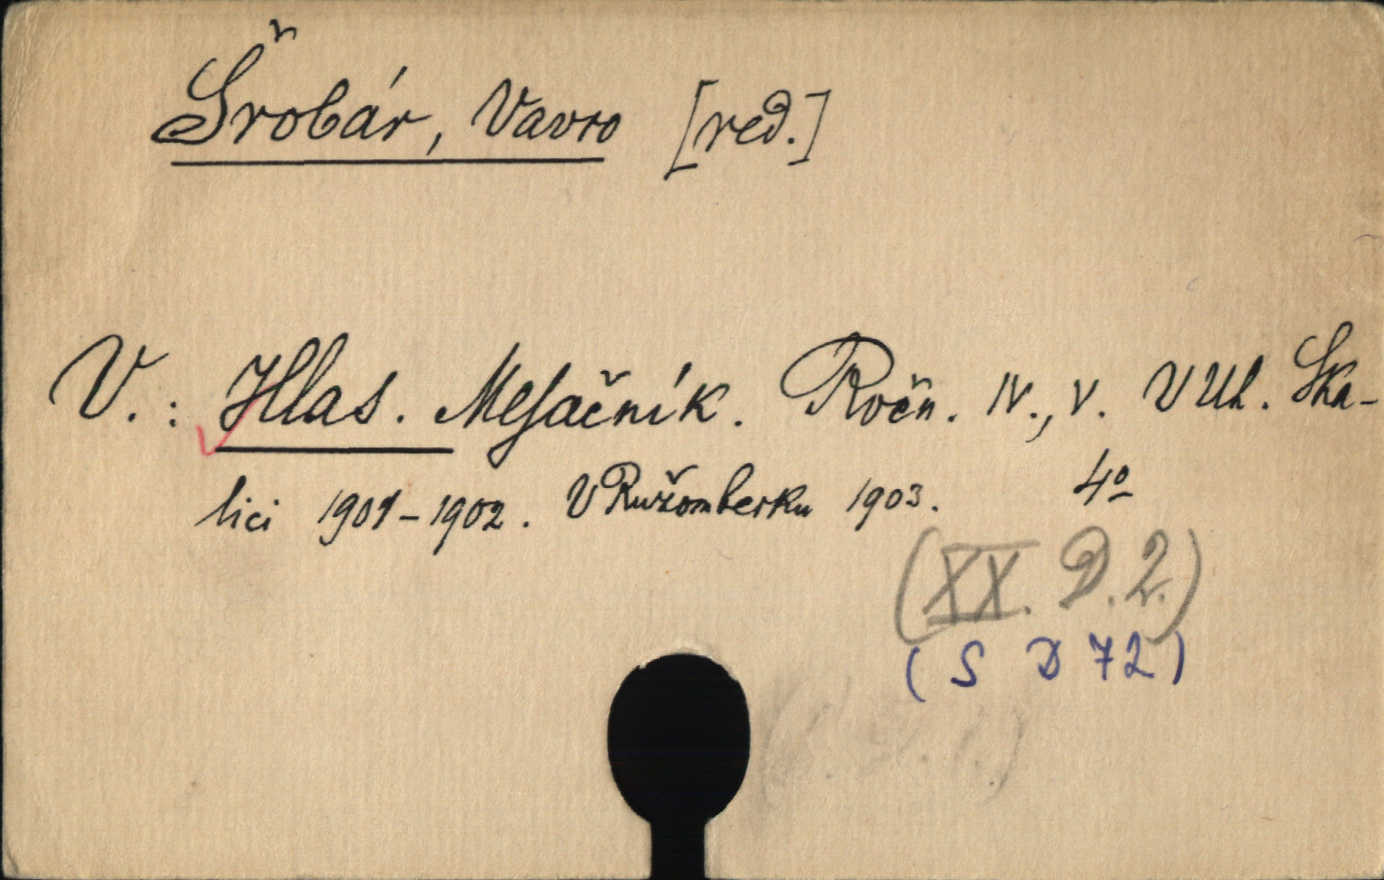 Šrobár, Vavro [red.]
V.: Hlas. Mesačník. Ročn. IV., V. V Uh. Ska-
lici 1901-1902. V Ružomberku 1903. 4º
(XX. D. 2.)
(S D 72)